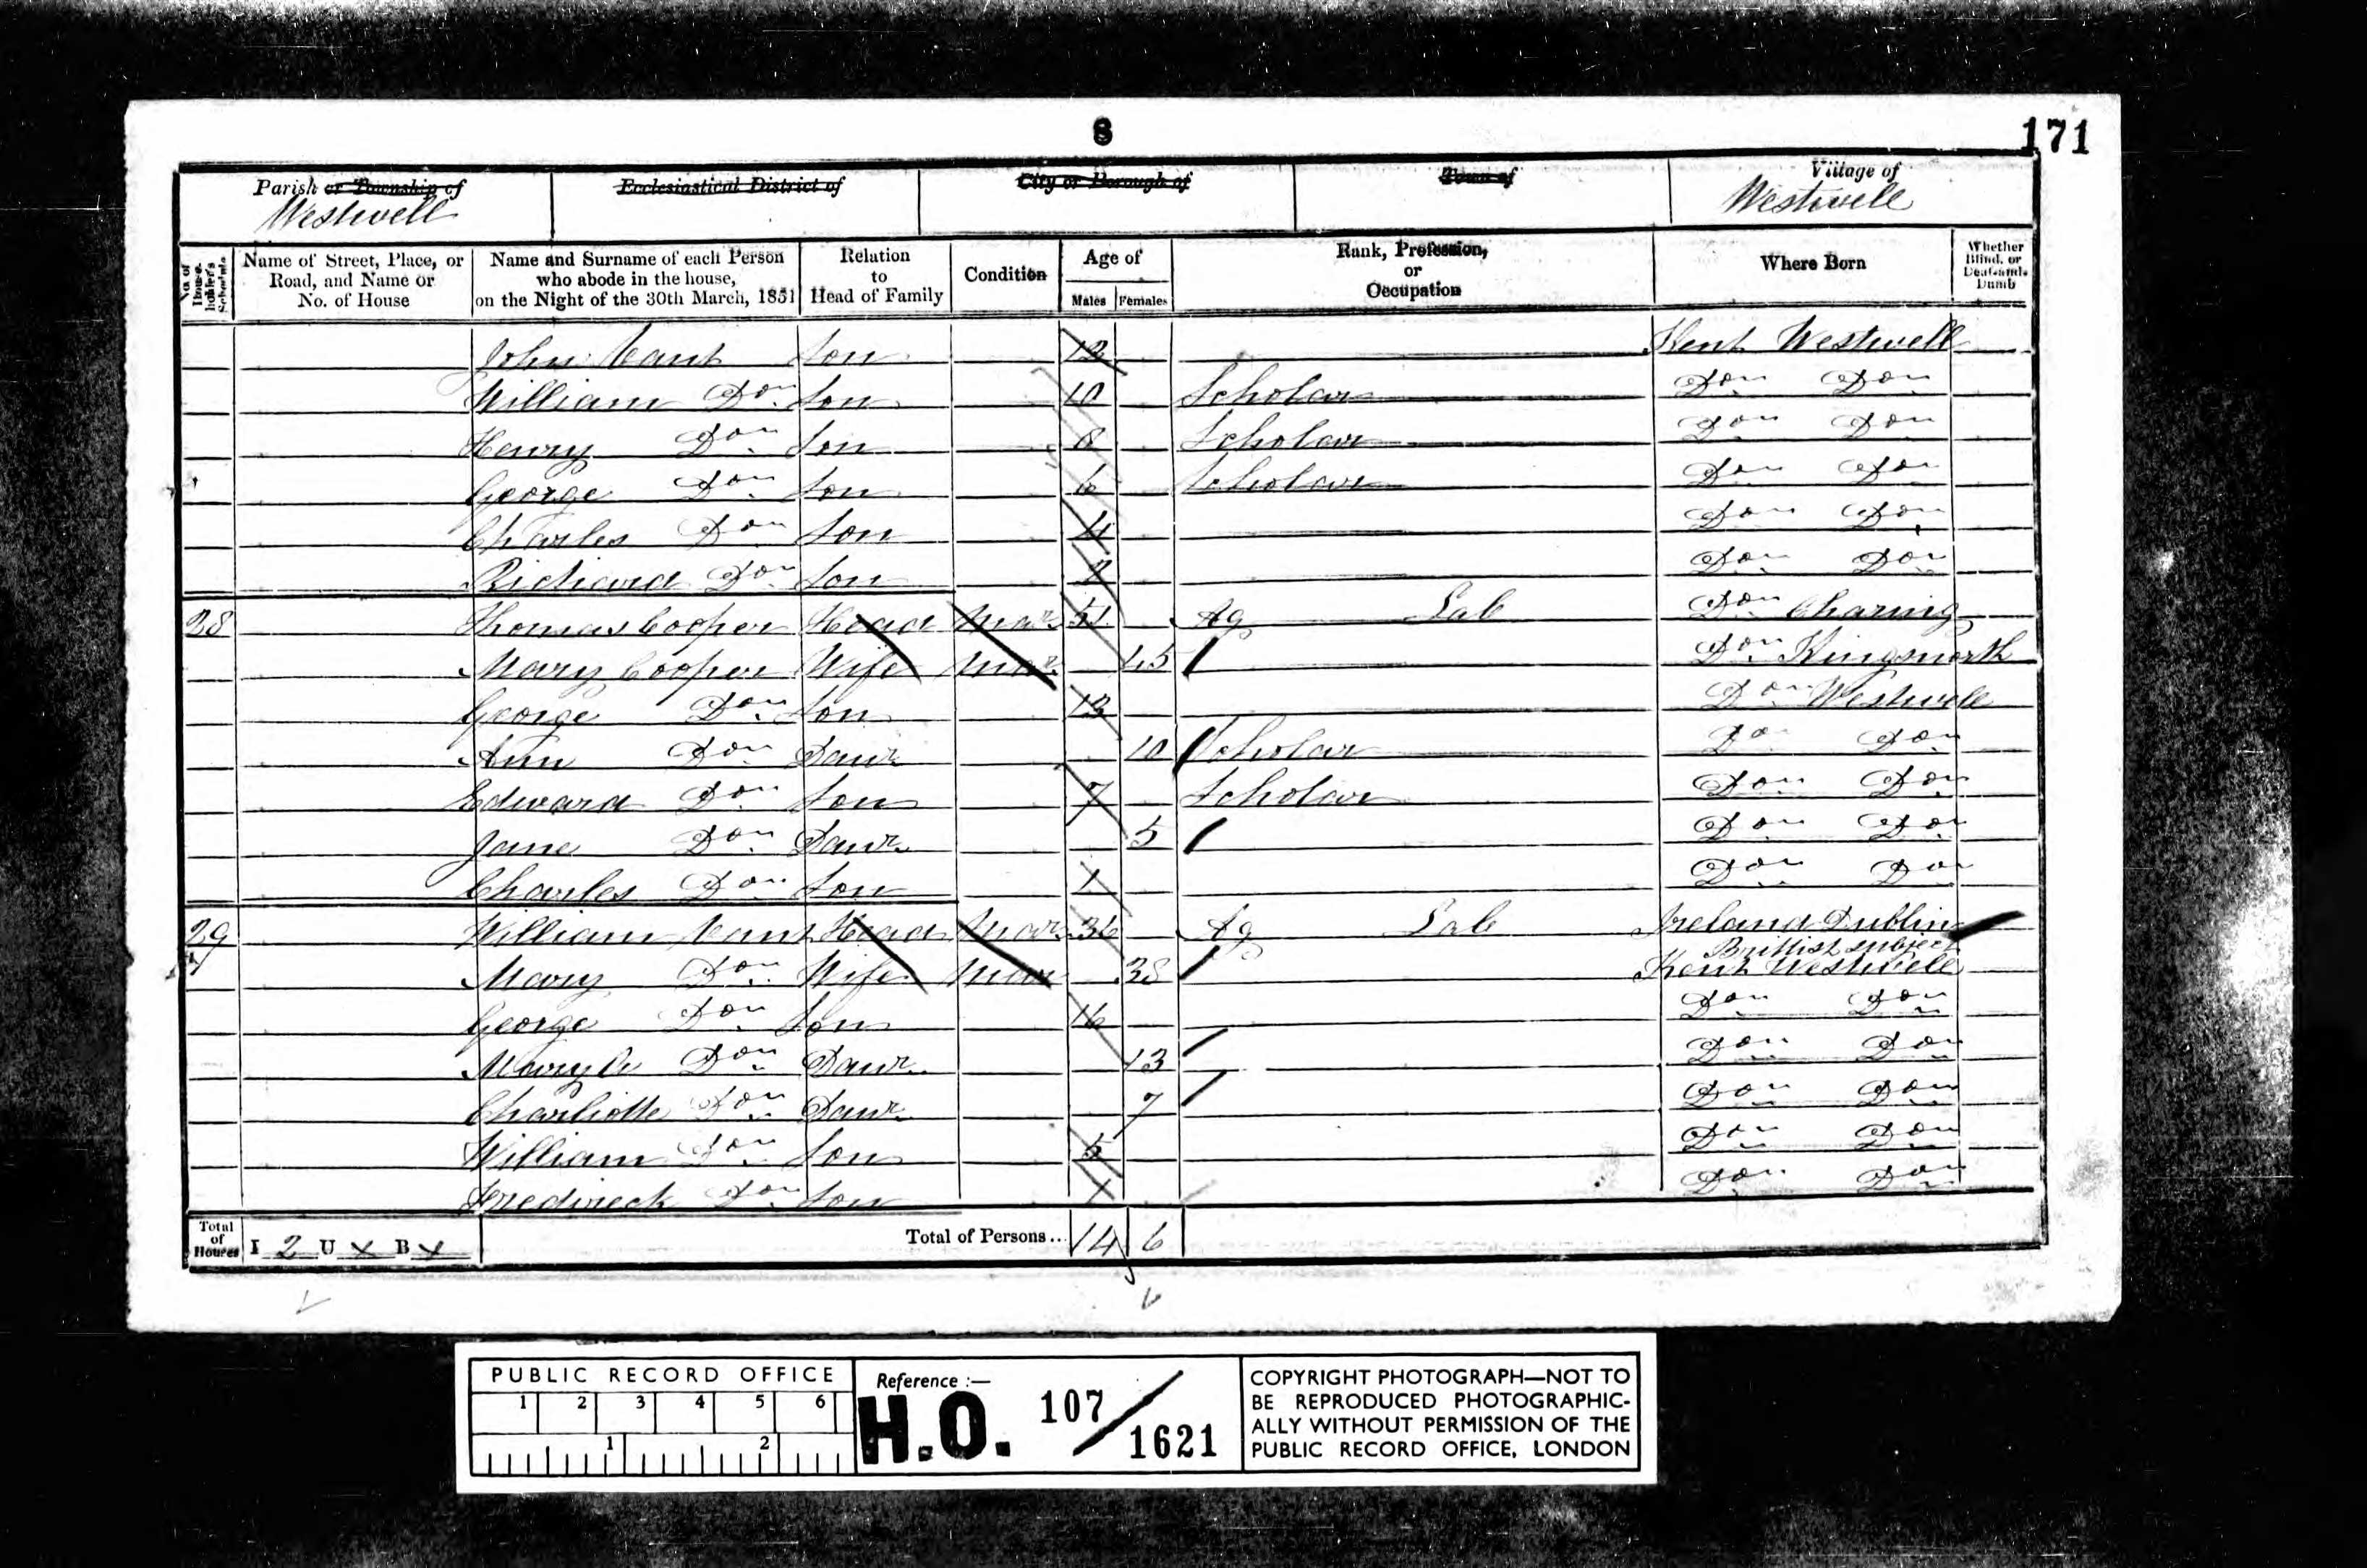 8
171
Parish or Township of
Westwell
Ecclesiastical District of
City or Borough of
Town of
Village of
Westwell
No. of House-holder's Schedule
Name of Street, Place, or Road, and Name or No. of House
Name and Surname of each Person who abode in the house, on the Night of the 30th March, 1851
Relation to Head of Family
Condition
Age of
Males Females
Rank, Profession, or Occupation
Where Born
Whether Blind, or Deaf-and-Dumb
John Cant Son 12 Kent Westwell
William Do Son 10 Scholar Do Do
Henry Do Son 8 Scholar Do Do
George Do Son 6 Scholar Do Do
Charles Do Son 4 Do Do
Richard Do Son Do Do
28 Thomas Cooper Head Mar 51 Ag Lab Do Charing
Mary Cooper Wife Mar 45 Do Kingsnorth
George Do Son 13 Do Westwell
Ann Do Daur 10 Scholar Do Do
Edward Do Son 7 Scholar Do Do
Jane Do Daur 5 Do Do
Charles Do Son 1 Do Do
29 William Cant Head Mar 36 Ag Lab Ireland Dublin
Brittish subject
Mary Do Wife Mar 38 Kent Westwell
George Do Son 16 Do Do
Mary Do Daur 13 Do Do
Charliotte Do Daur 7 Do Do
William Do Son 5 Do Do
Fredireck Do Son 1 Do Do
Total of Houses I 2 U x B x
Total of Persons.. 14 6
PUBLIC RECORD OFFICE
1 2 3 4 5 6
1 2
Reference :—
H.O. 107/1621
COPYRIGHT PHOTOGRAPH—NOT TO
BE REPRODUCED PHOTOGRAPHIC-
ALLY WITHOUT PERMISSION OF THE
PUBLIC RECORD OFFICE, LONDON